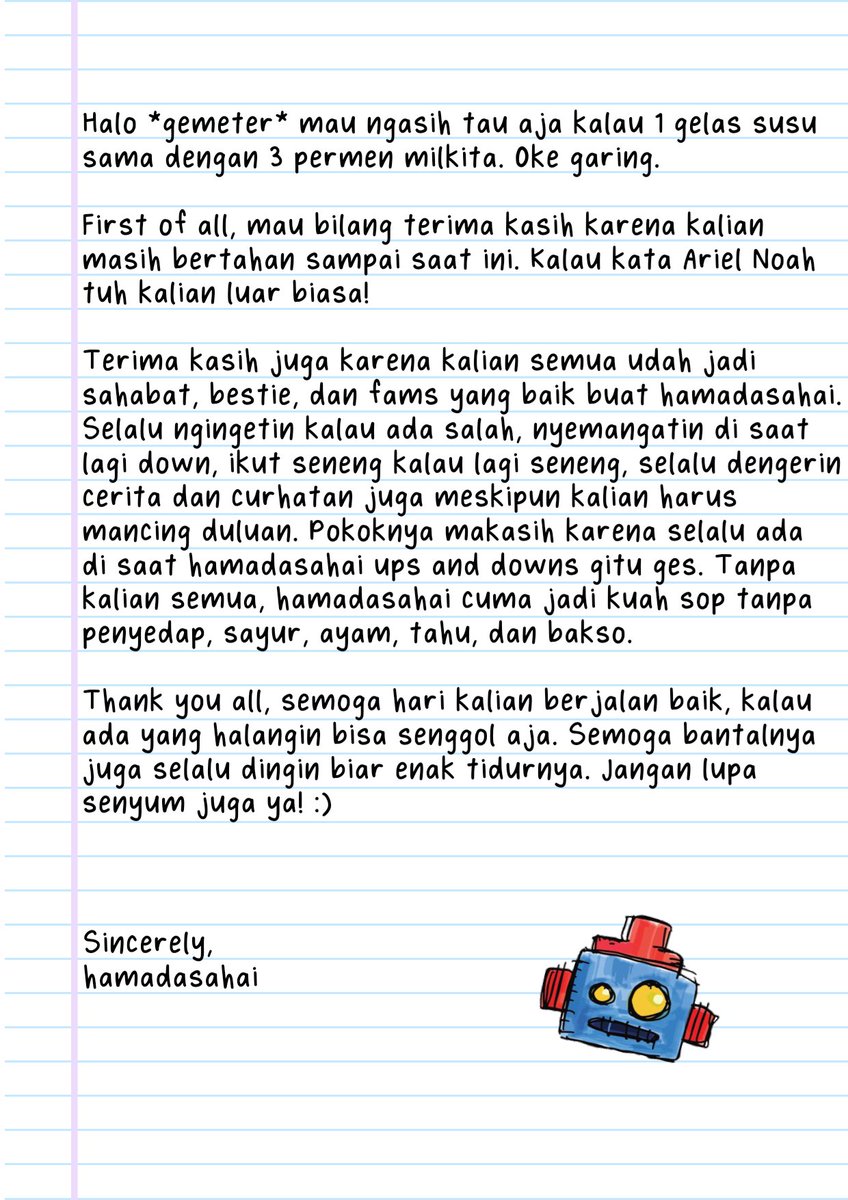 Halo *gemeter* mau ngasih tau aja kalau 1 gelas susu
sama dengan 3 permen milkita. Oke garing.
First of all, mau bilang terima kasih karena kalian
masih bertahan sampai saat ini. Kalau kata Ariel Noah
tuh kalian luar biasa!
Terima kasih juga karena kalian semua udah jadi
sahabat, bestie, dan fams yang baik buat hamadasahai.
Selalu ngingetin kalau ada salah, nyemangatin di saat
lagi down, ikut seneng kalau lagi seneng, selalu dengerin
cerita dan curhatan juga meskipun kalian harus
mancing duluan. Pokoknya makasih karena selalu ada
di saat hamadasahai ups and downs gitu ges. Tanpa
kalian semua, hamadasahai cuma jadi kuah sop tanpa
penyedap, sayur, ayam, tahu, dan bakso.
Thank you all, semoga hari kalian berjalan baik, kalau
ada yang halangin bisa senggol aja. Semoga bantalnya
juga selalu dingin biar enak tidurnya. Jangan lupa
senyum juga ya! :)
Sincerely,
hamadasahai